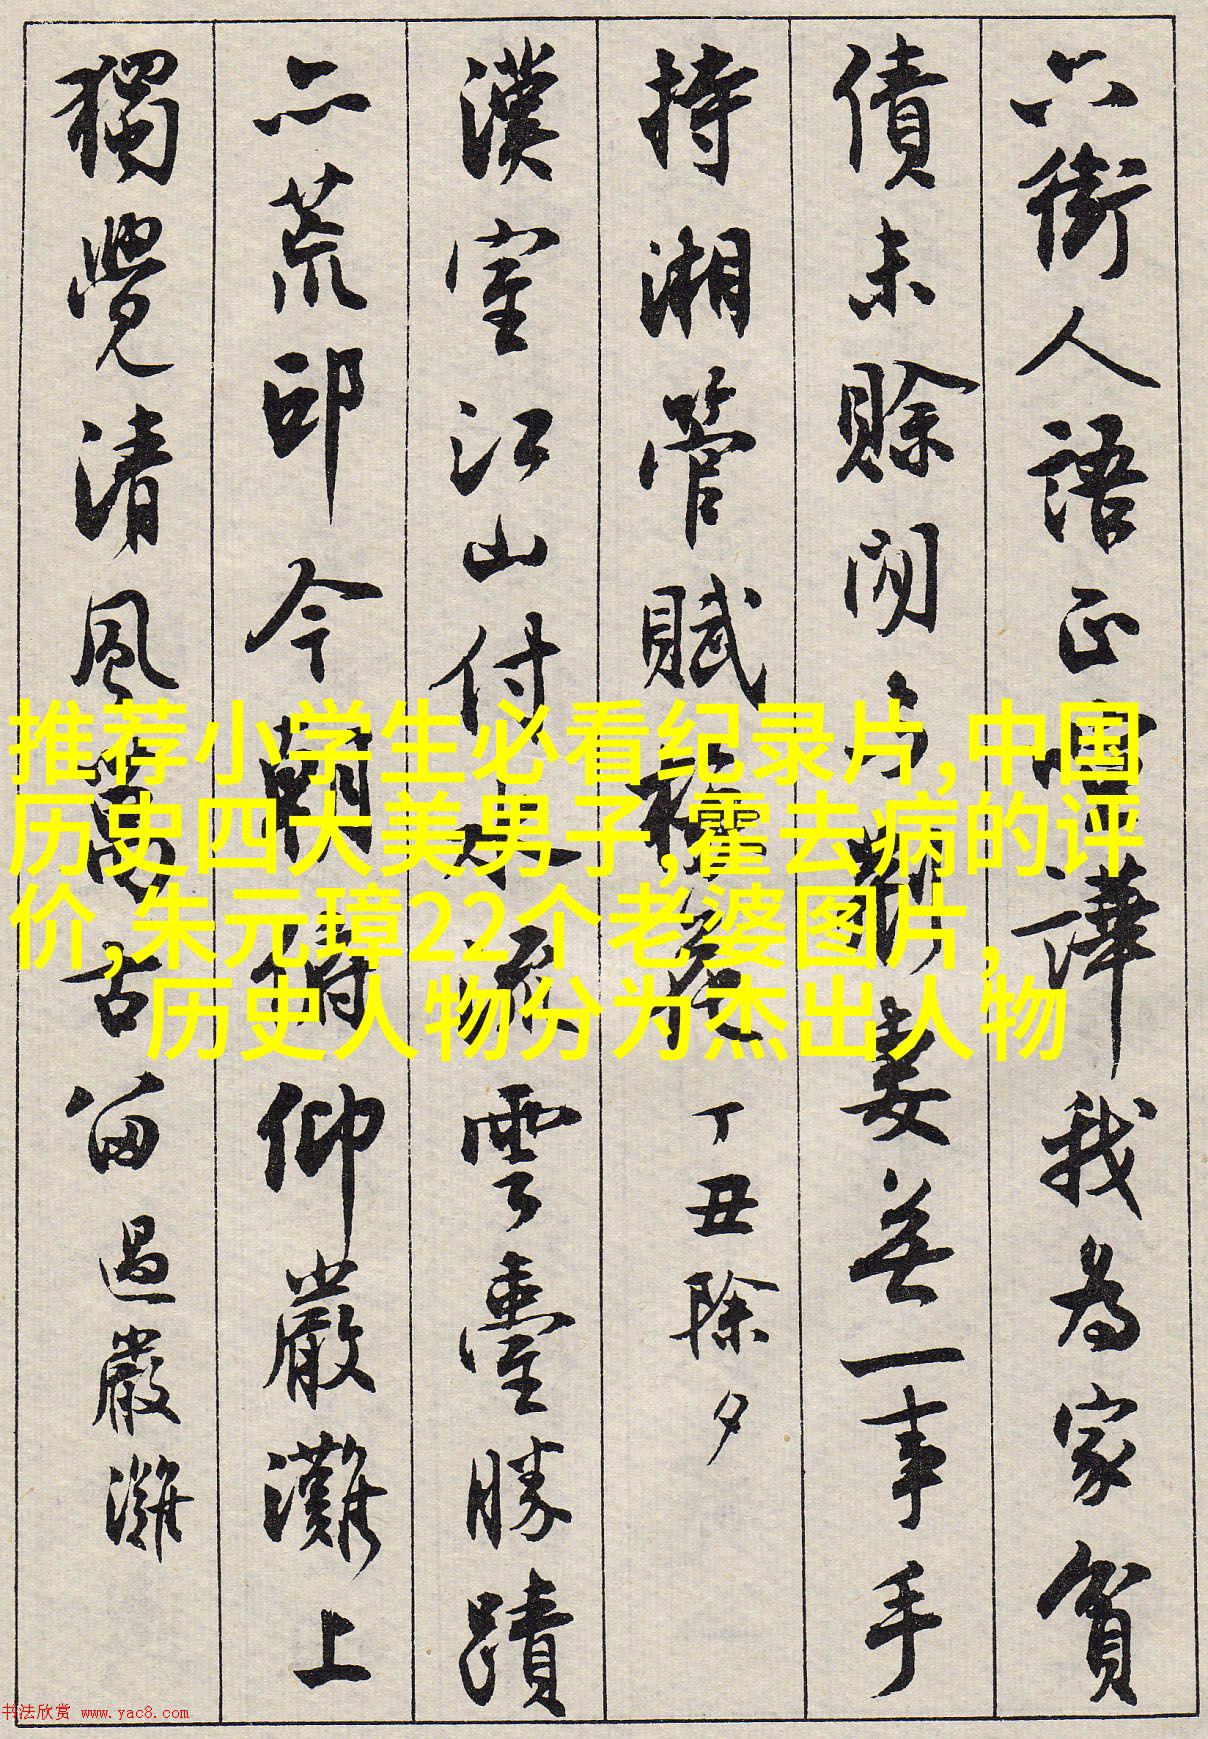 六街人語正喧譁我為家貧
債未賒閒與觀妻無一事手
持湘管賦梅花 丁丑除夕
漢室江山付水流雲臺勝蹟
亦荒邱今朝得仰嚴灘上
獨覺清風萬古留 過嚴灘
推荐小学生必看纪录片,中国
历史四大美男子,霍去病的评
价,朱元璋22个老婆图片,
历史人物分为杰出人物
书法欣赏 www.yac8.com